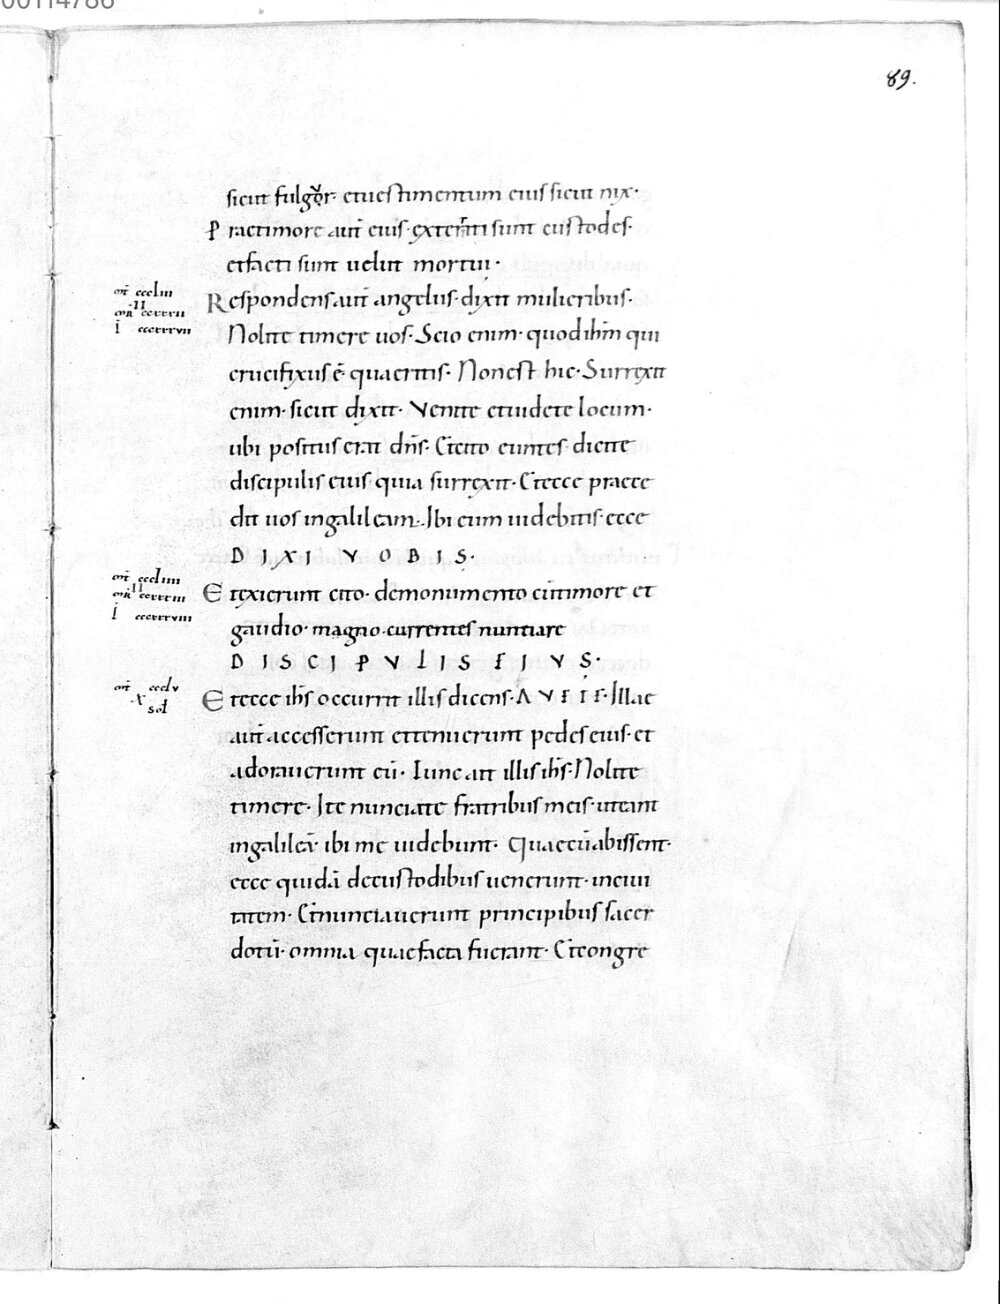 00114786
89.
sicut fulgor· etuestimentum eius sicut nix·
Praetimore aut̄ eius·exterriti sunt custodes·
etfacti sunt uelut mortui·
mt̄ cccliii
Respondens aut̄ angelus·dixit mulieribus·
II
Nolite timere uos·Scio enim·quod ih̄m qui
crucifixus ē quaeritis· Nonest hic·Surrexit
enim·sicut dixit· Venite etuidete locum·
ubi positus erat dn̄s· Etcito euntes dicite
discipulis eius·quia surrexit·Etecce praece
dit uos ingalileam·Ibi eum uidebitis·ecce
DIXI VOBIS·
mt̄ cccliiii
Etexierunt cito·demonumento cūtimore et
II
gaudio·magno·currentes nuntiare
DISCIPULIS EIUS·
mt̄ ccclv
Etecce ih̄s occurrit illis dicens·AVETE·Illae
X
sol
aut̄ accesserunt ettenuerunt pedes eius·et
adorauerunt eū· Tunc ait illis ih̄s·Nolite
timere· Ite nunciate fratribus meis·uteant
ingalileā· ibi me uidebunt· Quaecūabissent·
ecce quidā decustodibus uenerunt·inciui
tatem· Etnunciauerunt principibus sacer
dotū·omnia quaefacta fuerant· Etcongre